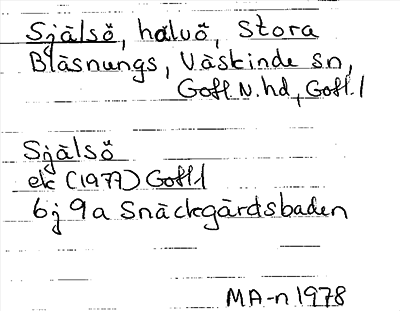 Själsö, halvö, Stora
Bläsnungs, Väskinde sn,
Gotl. N. hd, Gotl. l
Själsö
ek (1977) Gotl. l
6j 9a Snäckgärdsbaden
MA-n 1978